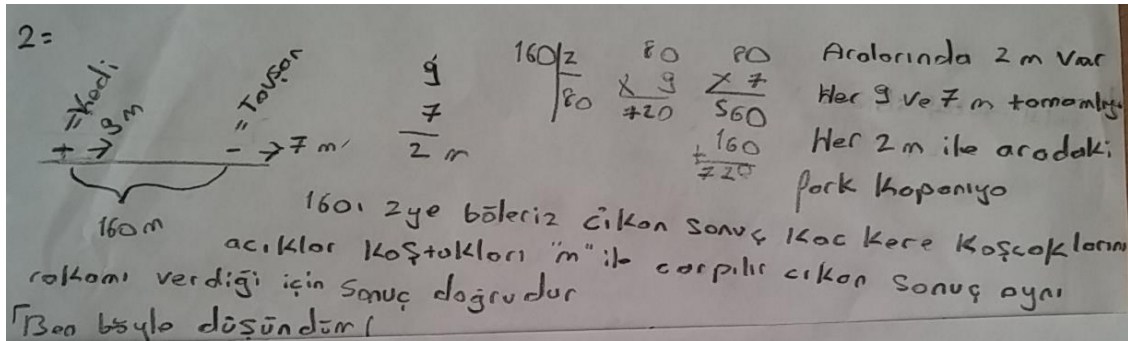 2=
=Kedi
+ → 9 m
= Tavşan
- → 7 m
160 m
9
7
2 m
160 2
80
80
x 9
720
80
x 7
560
+ 160
720
Aralarında 2 m var
Her 9 ve 7 m
Her 2 m ile aradaki
fark kapanıyo
160ı 2ye böleriz çıkan sonuç kac kere koşcaklarını
acıklar koştukları "m" ile carpılır cıkan sonuç aynı
rakamı verdiği için sonuç doğrudur
Ben böyle düşündüm